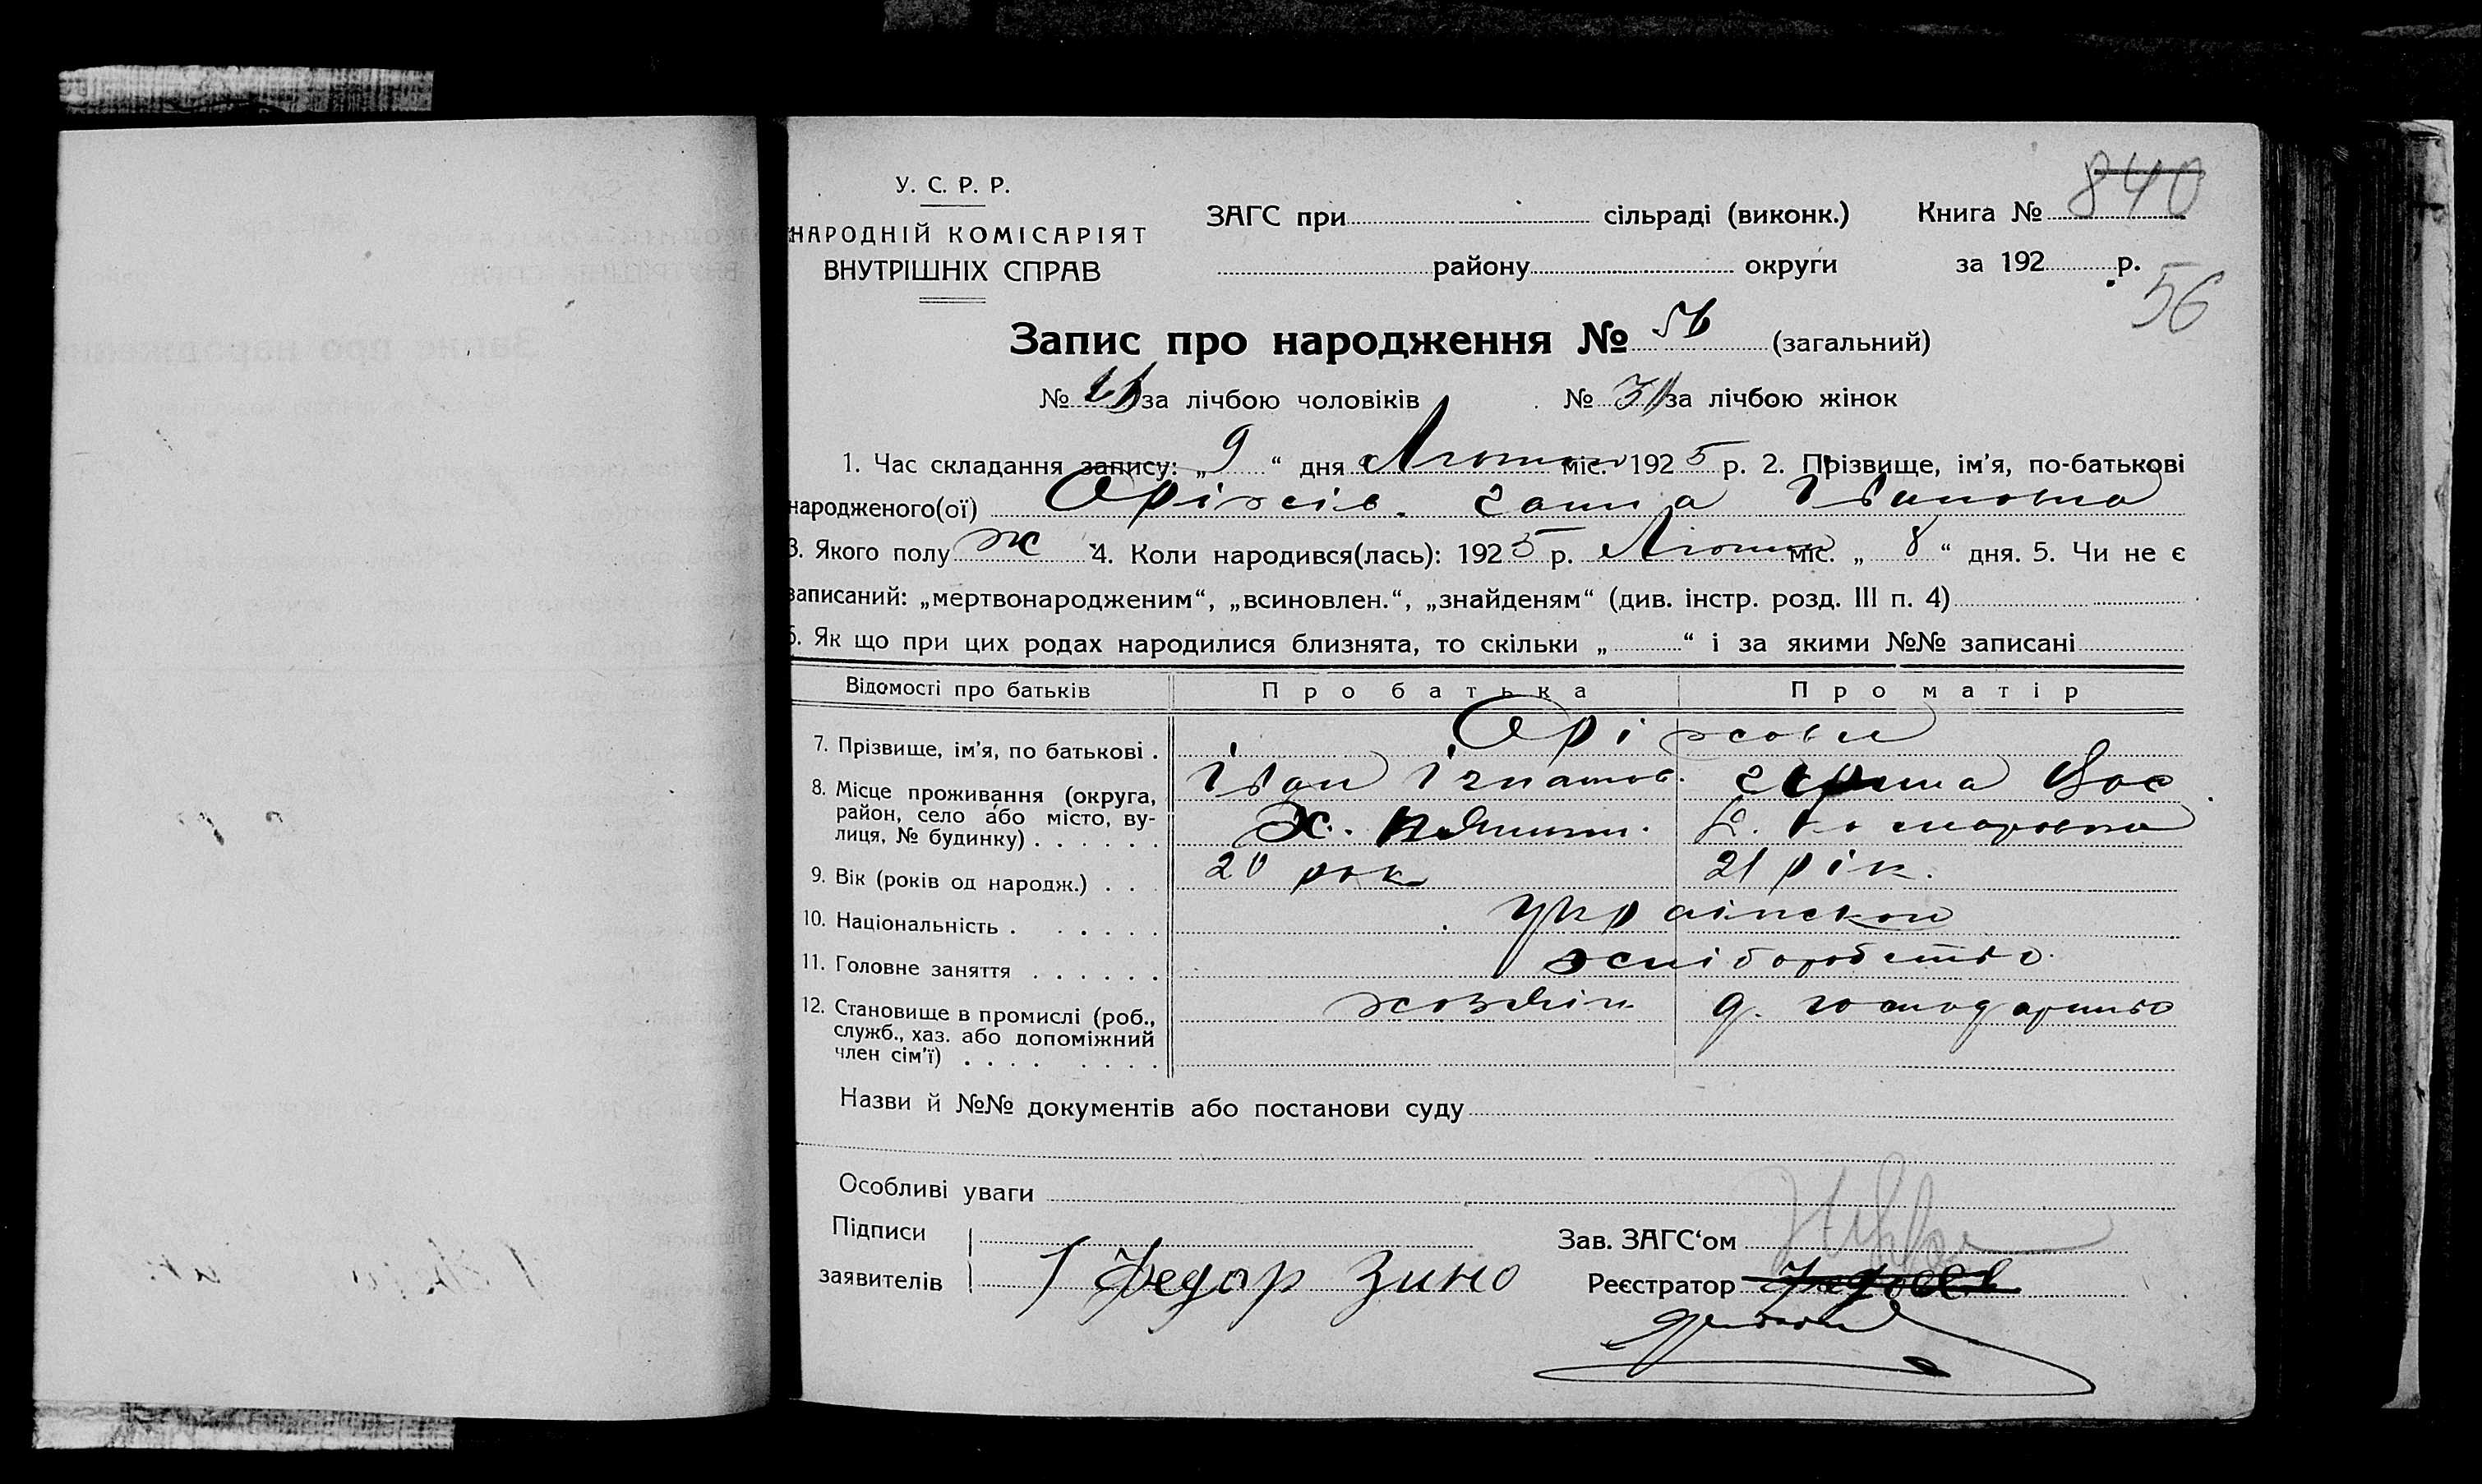 840
У. С. Р. Р.
НАРОДНІЙ КОМІСАРІЯТ
ВНУТРІШНІХ СПРАВ
ЗАГС при сільраді (виконк.) Книга №
району округи за 192 р.
56
Запис про народження № 56 (загальний)
№ за лічбою чоловіків № за лічбою жінок
1. Час складання запису: „9“ дня Лютого міс. 1925 р. 2. Прізвище, ім'я, по-батькові
народженого(ої) Оріхів. Ганна Івановна
3. Якого полу ж 4. Коли народився(лась): 1925 р. Лютого міс. „8“ дня. 5. Чи не є
записаний: „мертвонародженим“, „всиновлен.“, „знайденям“ (див. інстр. розд. III п. 4)
6. Як що при цих родах народилися близнята, то скільки „ “ і за якими №№ записані
Відомості про батьків Про батька Про матір
7. Прізвище, ім'я, по батькові . Оріхови
Іван Ігнатов. Ганна Вас
8. Місце проживання (округа,
район, село або місто, ву-
лиця, № будинку) . . . . . . Х.
9. Вік (років од народж.) . . . 20 рок 21 рік.
10. Національність . . . . . . українскои
11. Головне заняття . . . . . . хліборобство.
12. Становище в промислі (роб.,
служб., хаз. або допоміжний
член сім'ї) . . . . . . . . хозяїн д. господарство
Назви й №№ документів або постанови суду
Особливі уваги
Підписи
заявителів Федор Зино
Зав. ЗАГС‘ом
Реєстратор